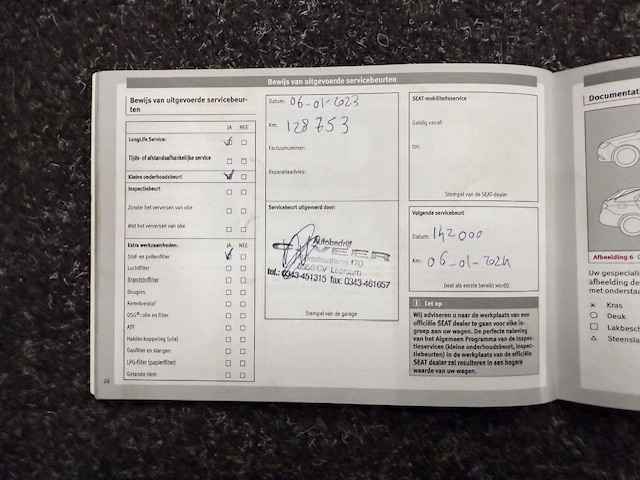 Bewijs van uitgevoerde servicebeurten
Bewijs van uitgevoerde servicebeur-
ten
JA NEE
LongLife Service:
Tijds- of afstandsafhankelijke service
Kleine onderhoudsbeurt
Inspectiebeurt
Zonder het verversen van olie
Met het verversen van olie
Extra werkzaamheden: JA NEE
Stof- en pollenfilter
Luchtfilter
Brandstoffilter
Bougies
Remvloeistof
DSG®: olie en filter
ATF
Haldex-koppeling (olie)
Gasfilter en slangen
LPG-filter (papierfilter)
Getande riem
24
Datum: 06-01-2023
Km: 128753
Factuurnummer:
Reparatieadvies:
Servicebeurt uitgevoerd door:
Autobedrijf
tel.: 0343-451315 fax: 0343-461657
Stempel van de garage
SEAT-mobiliteitsservice
Geldig vanaf:
tot:
Stempel van de SEAT-dealer
Volgende servicebeurt
Datum: 142000
Km: 06-01-2024
(wat als eerste bereikt wordt)
Let op
Wij adviseren u naar de werkplaats van een
officiële SEAT dealer te gaan voor elke in-
greep aan uw wagen. De perfecte naleving
van het Algemeen Programma van de inspec-
tieservices (kleine onderhoudsbeurt, inspec-
tiebeurten) in de werkplaats van de officiële
SEAT dealer zal resulteren in een hogere
waarde van uw wagen.
Documentat
Afbeelding 6
Uw gespecial
afbeelding de
met onderstaa
Kras
Deuk
Lakbesch
Steenslag